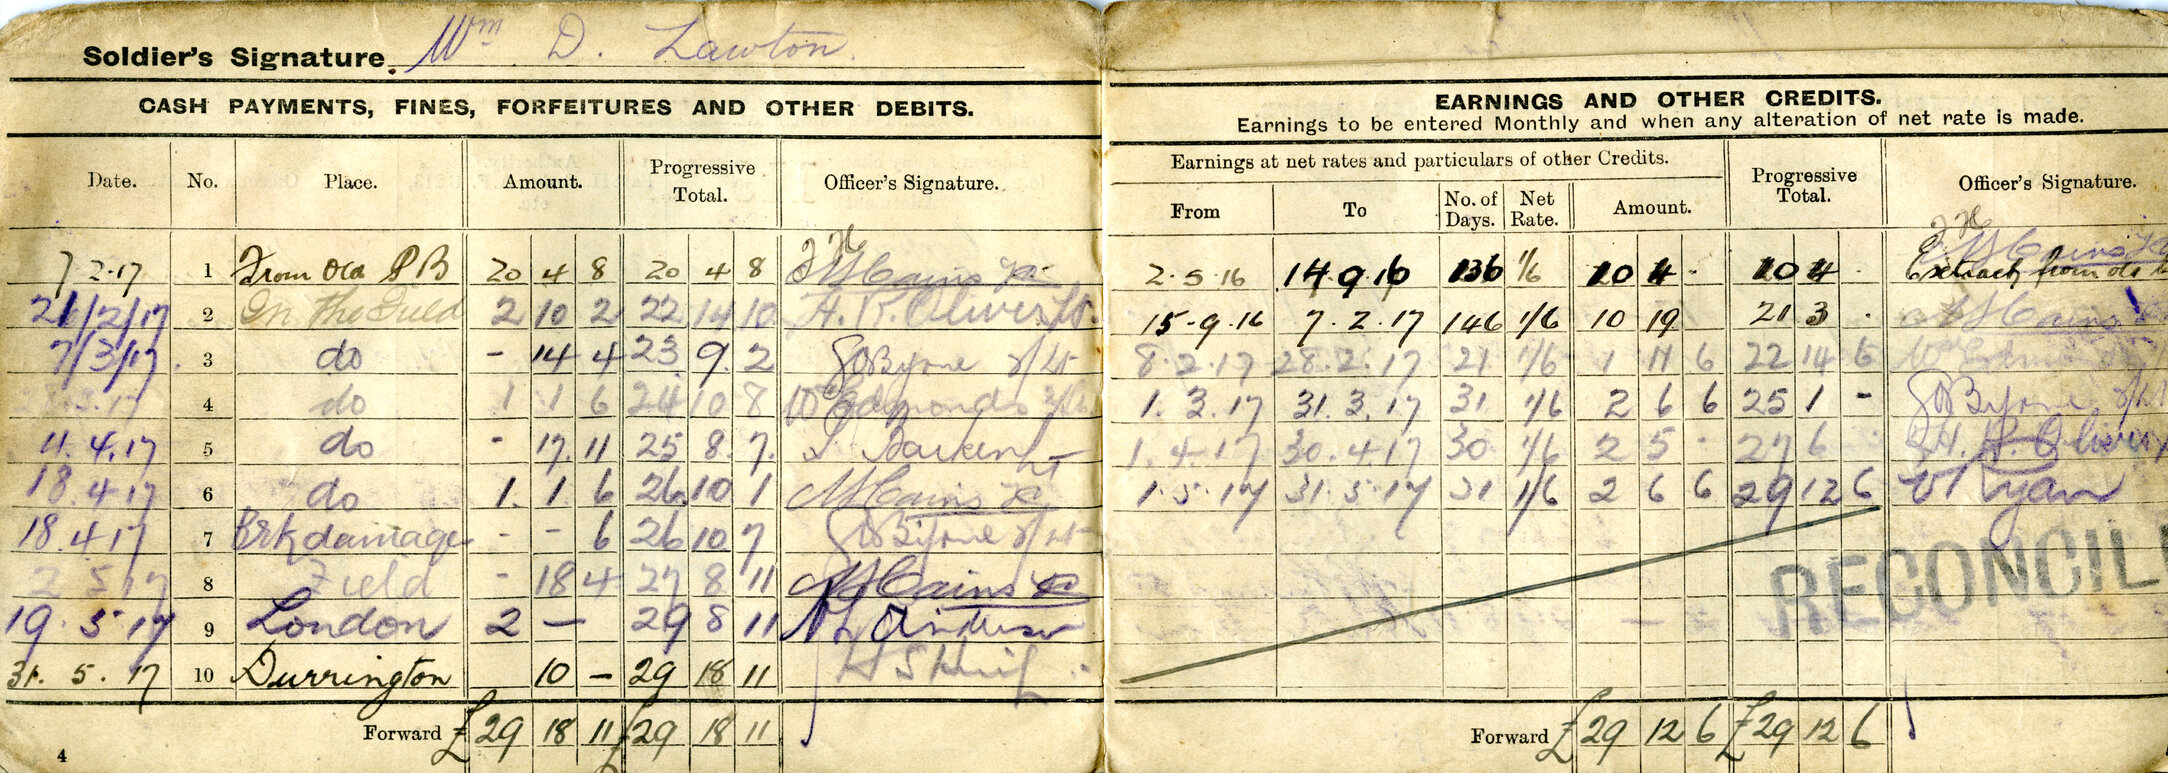 Soldier's Signature. Wm D. Lawton.
CASH PAYMENTS, FINES, FORFEITURES AND OTHER DEBITS.
Date. No. Place. Amount. Progressive Total. Officer's Signature.
7 2.17 1 From old P B 20 4 8 20 4 8
21/2/17 2 In the Field 2 10 2 22 14 10 H. R. Oliver Lt.
7/3/17. 3 do - 14 4 23 9. 2 Byrne 2/Lt
28.3.17 4 do 1 1 6 24 10 8 Wm Edmonds 2/Lt
11.4.17 5 do - 17. 11 25 8. 7.
18.4.17 6 do 1. 1 6 26.10 1 Cains Lt
18.4.17 7 Brk damage - - 6 26 10 7 Byrne 2/Lt
2 5 17 8 Field - 18 4 27 8 11 Cains Lt
19. 5 17 9 London 2 — 29 8 11
31. 5. 17 10 Durrington 10 — 29 18 11
Forward £29 18 11 £29 18 11
4
EARNINGS AND OTHER CREDITS.
Earnings to be entered Monthly and when any alteration of net rate is made.
Earnings at net rates and particulars of other Credits. Progressive Total. Officer's Signature.
From To No. of Days. Net Rate. Amount.
2.5.16 14.9.16 136 1/6 10 4 - 10 4 . Extract from old
15.9.16 7.2.17 146 1/6 10 19 21 3 . Cains
8.2.17 28.2.17 21 1/6 1 11 6 22 14 6 Wm Edmonds
1.3.17 31.3.17 31 1/6 2 6 6 25 1 - Byrne 2/Lt
1.4.17 30.4.17 30 1/6 2 5 - 27 6 . H. R. Oliver
1.5.17 31.5.17 31 1/6 2 6 6 29 12 6 Ryan
RECONCIL
Forward £29 12 6 £29 12 6